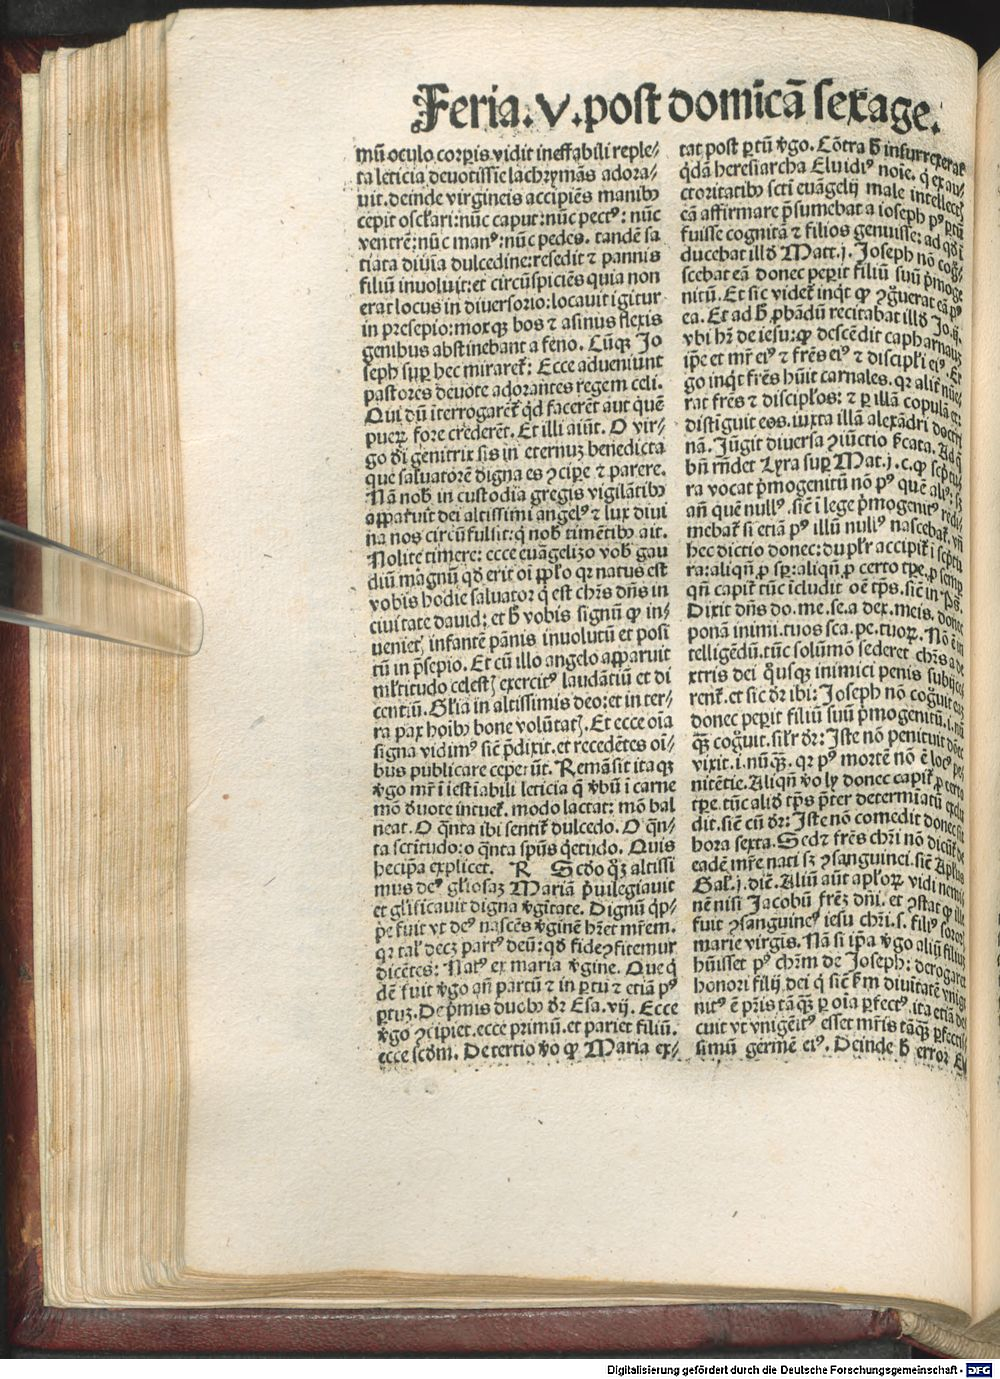 Feria. V. post domicā sexage.
mū oculo corꝑis vidit ineffabili reple-
ta leticia deuotissie lachrymās adora-
uit. deinde virgineis accipiēs manibꝰ
cepit osclari: nūc caput: nūc pectꝰ: nūc
ventrē: nūc manꝰ: nūc pedes. tandē sa
tiata diuia dulcedine: resedit ⁊ pannis
filiū inuoluit: et circūspiciēs quia non
erat locus in diuersorio: locauit igitur
in presepio: moxqꝫ bos ⁊ asinus flexis
genibus abstinebant a feno. Cūqꝫ Jo
seph suꝑ hec miraret: Ecce adueniūnt
pastores deuote adorantes regem celi.
Qui dū iterrogarēt qd facerēt aut quē
pueꝝ fore crederēt. Et illi aiūt. O vir-
go di genitrix sis in eternuꝫ benedicta
que saluatorē digna es ꝯciꝑe ⁊ parere.
Nā nob in custodia gregis vigilātibꝰ
apparuit dei altissimi angelꝰ ⁊ lux diui
na nos circūfulsit: q nob timētibꝰ ait.
Nolite timere: ecce euāgelizo vob gau
diū magnū qd erit oi pplo qr natus est
vobis hodie saluator q est chrs dns in
ciuitate dauid: et h vobis signū qꝫ in-
uenietꝭ infantē pānis inuolutū et posi
tū in p̄sepio. Et cū illo angelo apparuit
mltitudo celestꝭ exercitꝰ laudātiū et di
centiū. Glia in altissimis deo: et in ter-
ra pax hoibꝰ bone volūtatꝭ. Et ecce oīa
signa vidimꝰ sic p̄dixit. et recedētes oi-
bus publicare ceperūt. Remāsit itaqꝫ
v̄go mr̄ i iestiabili leticia q̄ vbū i carne
mō deuote intuet. modo lactat: mō bal
neat. O q̄nta ibi sentit dulcedo. O q̄n-
ta sctitudo: o q̄nta spūs q̄etudo. Quis
hec ip̄a explicet. R Scdo qꝫ altissi
mus deꝰ gliosaꝫ Mariā p̄uilegiauit
et glificauit digna v̄gitate. Dignū qp-
pe fuit vt deꝰ nascēs v̄ginē hret mrem.
qr tal decꝫ partꝰ deū: qd fide ꝯfitemur
dicētes: Natꝰ ex maria v̄gine. Que q̇
dē fuit v̄go an̄ partū ⁊ in ꝑtu ⁊ etiā pꝰ
ꝑtuꝫ. De p̄mis duobꝰ dr Esa. vij. Ecce
v̄go ꝯcipiet. ecce primū. et pariet filiū.
ecce scdm. De tertio v̄o qꝫ Maria ex-
tat post ꝑtū v̄go. Cōtra h insurrexerat
qdā heresiarcha Eluidiꝰ noie. q ex au-
ctoritatibꝰ scti euāgelij male intellectꝭ
eā affirmare p̄sumebat a ioseph pꝰ ꝑtū
fuisse cognitā ⁊ filios genuisse: ad qd i
ducebat illd Matt. j. Joseph nō cog-
scebat eā donec peꝑit filiū suū p̄moge
nitū. Et sic videt inqt qꝫ ꝯguerat eā pꝰ
ea. Et ad h ꝓbādū recitabat illd Jo. ij.
vbi hr̄ de iesu: qꝫ descēdit capharnauꝫ
ip̄e et mr̄ eiꝰ ⁊ fr̄es eiꝰ ⁊ discipli eiꝰ. Er
go inqt fr̄es hūit carnales. qr alit nūe-
rat fr̄es ⁊ disciplos: ⁊ ꝑ illā copulā et:
distīguit eos. iuxta illā alexādri doctri
nā. Jūgit diuersa ꝯiūctio fcata. Ad q̄
bn̄ r̄ndet Lyra suꝑ Mat. j. c. qꝫ scptu-
ra vocat p̄mogenitū nō pꝰ quē aliꝰ: sꝫ
an̄ quē nullꝰ. sic i lege p̄mogenitꝰ redi-
mebat si etiā pꝰ illū nullꝰ nascebat. vn̄
hec dictio donec: duplr accipit i scptu
ra: aliqn̄ ꝓ sp̄: aliqn̄ ꝓ certo tꝑe. ꝓ semp
qn̄ capit tūc icludit oē tp̄s. sic in Ps.
Dixit dns do. me. se. a dex. meis. donec
ponā inimi. tuos sca. pe. tuoꝝ. Nō ē in
telligēdū. tūc solūmō sederet chrs a de
xtris dei qusqꝫ inimici penis subijce
rent. et sic dr ibi: Joseph nō coguit eā
donec peꝑit filiū suū p̄mogenitū. i. nū
q̄ꝫ coguit. silr dr: Iste nō penituit donec
vixit. i. nūq̄ꝫ. qr pꝰ mortē nō ē locꝰ pe
nitētie. Aliqn̄ v̄o ly donec capit ꝓ certo
tꝑe. tūc alid tp̄s p̄ter determiatū exclu
dit. sic cū dr: Iste nō comedit donec sit
hora sexta. Sedꝫ fr̄es chri nō dicūt de
eadē mr̄e nati sꝫ ꝯsanguinei. sic Aplus
Gal. j. dic. Aliū aūt aploꝝ vidi nemi
nē nisi Jacobū fr̄eꝫ dn̄i. et ꝯstat qꝫ ille
fuit ꝯsanguineꝰ iesu chri. s. filiꝰ soror
marie virgis. Nā si ip̄a v̄go aliū filiū
hūisset pꝰ chrm de Joseph: derogaret
honori filij dei q sic fm diuitatē vnige
nitꝰ ē pr̄is tāq̄ꝫ ꝑ oīa ꝑfectꝰ. ita etiā de
cuit vt vnigēitꝰ esset mr̄is tāq̄ꝫ ꝑfectis-
simū germē eiꝰ. Deinde h error
Digitalisierung gefördert durch die Deutsche Forschungsgemeinschaft - DFG